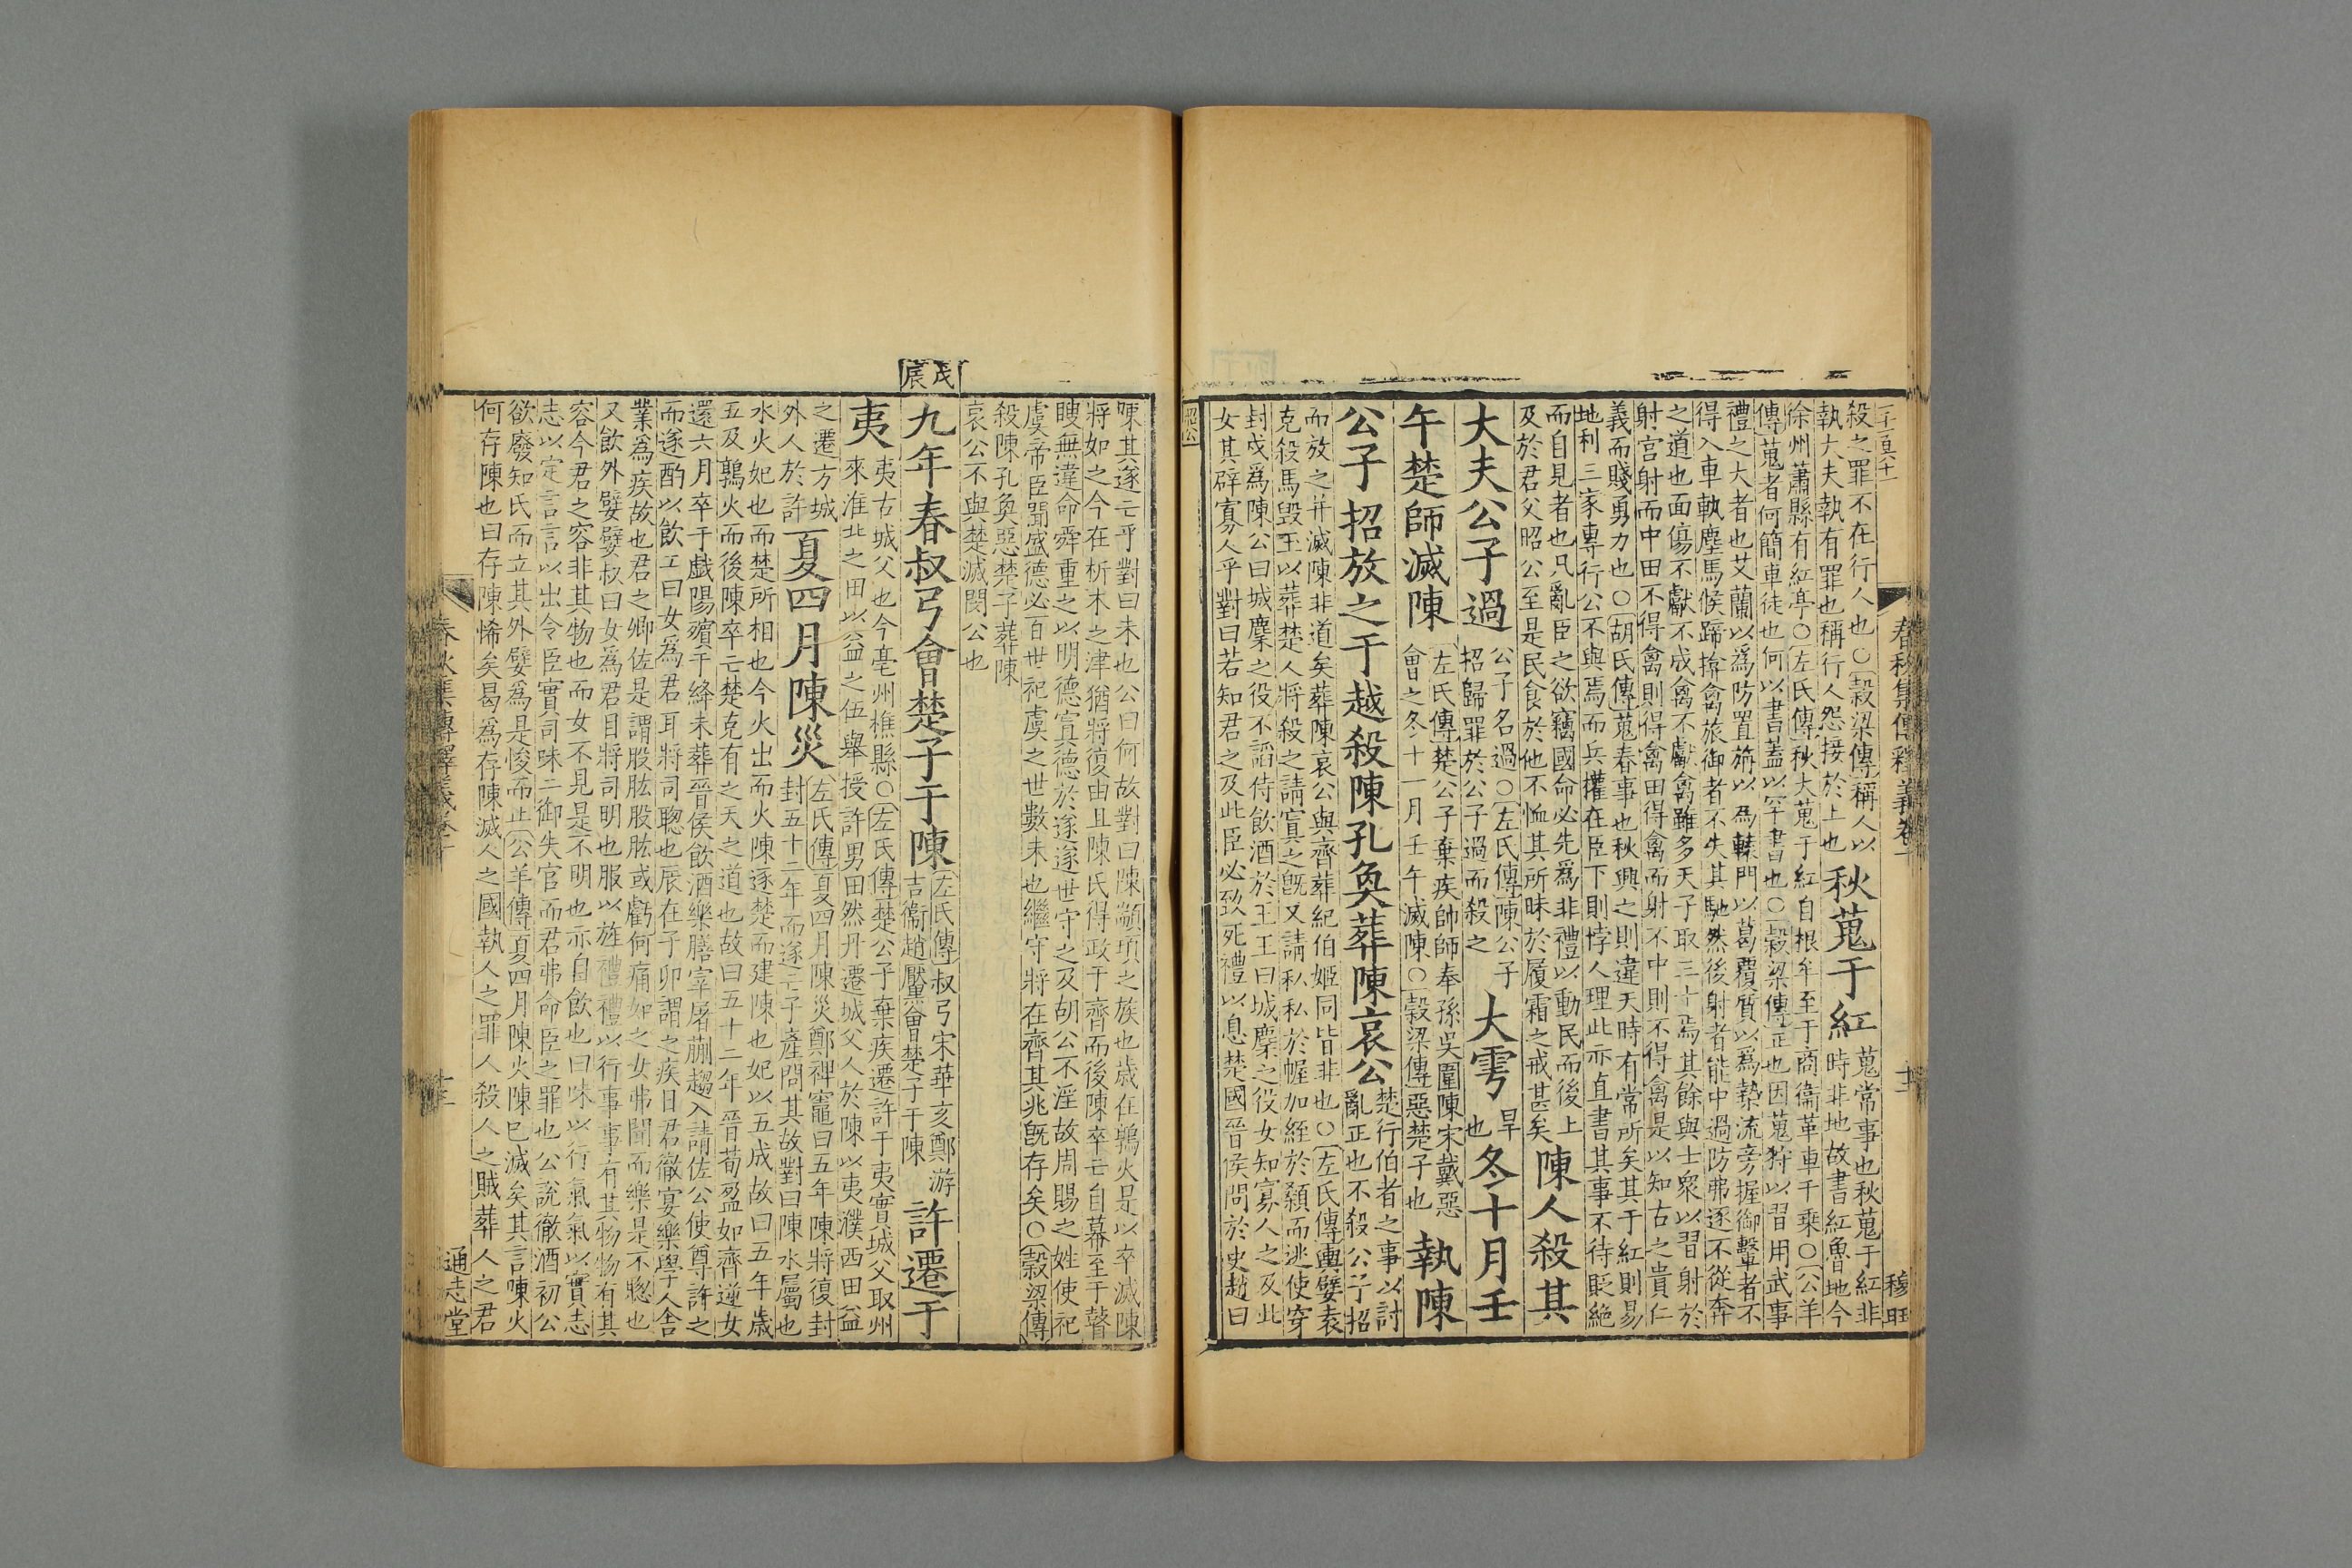 春秋集傳釋義卷十
穆旺
殺之罪不在行人也○穀梁傳稱人以
執大夫執有罪也稱行人怨接於上也
秋蒐于紅
蒐常事也秋蒐于紅非
時非地故書紅魯地今
徐州蕭縣有紅亭○左氏傳秋大蒐于紅自根牟至于商衞革車千乗○公羊
傳蒐者何簡車徒也何以書蓋以罕書也○穀梁傳正也因蒐狩以習用武事
禮之大者也艾蘭以爲防置旃以爲轅門以葛覆質以爲槷流旁握御轚者不
得入車軌塵馬候蹄揜禽旅御者不失其馳然後射者能中過防弗逐不從奔
之道也面傷不獻不成禽不獻禽雖多天子取三十焉其餘與士衆以習射於
射宮射而中田不得禽則得禽田得禽而射不中則不得禽是以知古之貴仁
義而賤勇力也○胡氏傳蒐春事也秋興之則違天時有常所矣其于紅則易
地利三家專行公不與焉而兵權在臣下則悖人理此亦直書其事不待貶絶
而自見者也凡亂臣之欲竊國命必先爲非禮以動民而後上
及於君父昭公至是民食於他不恤其所昧於履霜之戒甚矣
陳人殺其
大夫公子過
公子名過○左氏傳陳公子
招歸罪於公子過而殺之
大雩
旱
也
冬十月壬
午楚師滅陳
左氏傳楚公子棄疾帥師奉孫吳圍陳宋戴惡
會之冬十一月壬午滅陳○穀梁傳惡楚子也
執陳
公子招放之于越殺陳孔奐葬陳哀公
楚行伯者之事以討
亂正也不殺公子招
而放之并滅陳非道矣葬陳哀公與齊葬紀伯姬同皆非也○左氏傳輿嬖袁
克殺馬毁玉以葬楚人將殺之請寘之旣又請私私於幄加絰於顙而逃使穿
封戌爲陳公曰城麇之役不謟侍飲酒於王王曰城麇之役女知寡人之及此
女其辟寡人乎對曰若知君之及此臣必致死禮以息楚國晉侯問於史趙曰
昭公
陳其遂亡乎對曰未也公曰何故對曰陳顓頊之族也歲在鶉火是以卒滅陳
將如之今在析木之津猶將復由且陳氏得政于齊而後陳卒亡自幕至于瞽
瞍無違命舜重之以明德寘德於遂遂世守之及胡公不淫故周賜之姓使祀
虞帝臣聞盛德必百世祀虞之世數未也繼守將在齊其兆旣存矣○穀梁傳
殺陳孔奐惡楚子葬陳
哀公不與楚滅閔公也
戊辰
九年春叔弓會楚子于陳
左氏傳叔弓宋華亥鄭游
吉衞趙黶會楚子于陳
許遷于
夷
夷古城父也今亳州樵縣○左氏傳楚公子棄疾遷許于夷實城父取州
來淮北之田以益之伍舉授許男田然丹遷城父人於陳以夷濮西田益
之遷方城
外人於許
夏四月陳災
左氏傳夏四月陳災鄭裨竈曰五年陳將復封
封五十二年而遂亡子產問其故對曰陳水屬也
水火妃也而楚所相也今火出而火陳逐楚而建陳也妃以五成故曰五年歲
五及鶉火而後陳卒亡楚克有之天之道也故曰五十二年晉荀盈如齊逆女
還六月卒于戲陽殯于絳未葬晉侯飲酒樂膳宰屠蒯趨入請佐公使尊許之
而遂酌以飲工曰女爲君耳將司聰也辰在子卯謂之疾日君徹宴樂學人舍
業爲疾故也君之卿佐是謂股肱股肱或虧何痛如之女弗聞而樂是不聰也
又飲外嬖嬖叔曰女爲君目將司明也服以旌禮禮以行事事有其物物有其
容今君之容非其物也而女不見是不明也亦自飲也曰味以行氣氣以實志
志以定言言以出令臣實司味二御失官而君弗命臣之罪也公說徹酒初公
欲廢知氏而立其外嬖爲是悛而止○公羊傳夏四月陳火陳已滅矣其言陳火
何存陳也曰存陳悕矣曷爲存陳滅人之國執人之罪人殺人之賊葬人之君
春秋集傳釋義卷十
通志堂